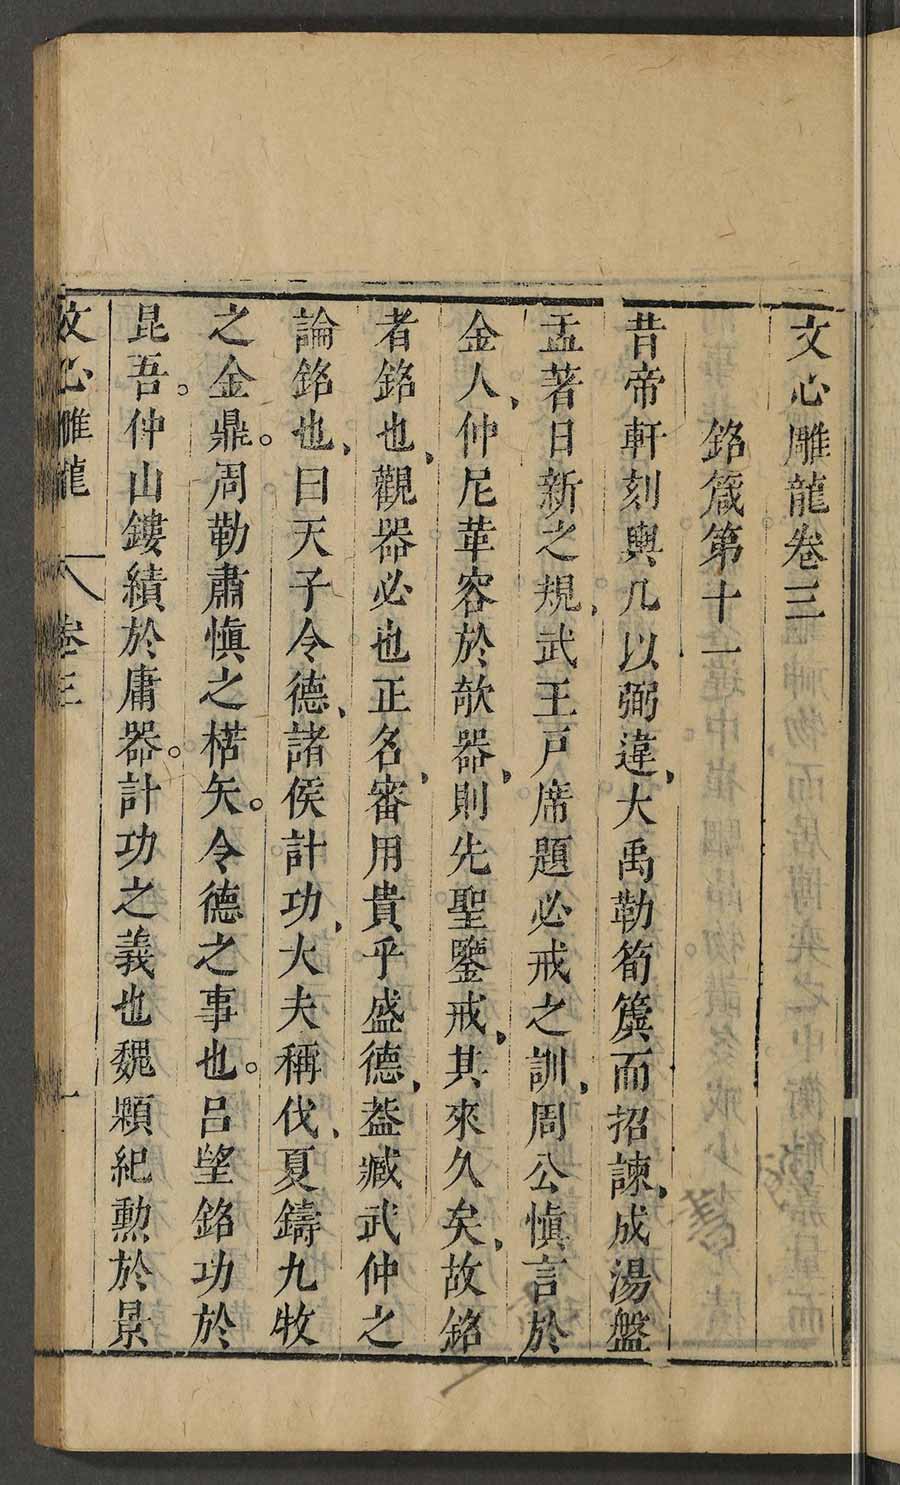 文心雕龍卷三
銘箴第十一
昔帝軒刻輿几以弼違、大禹勒筍簴而招諫、成湯盤
盂著日新之規、武王戸席題必戒之訓、周公愼言於
金人、仲尼革容於欹器、則先聖鑒戒、其來久矣、故銘
者銘也、觀器必也正名、審用貴乎盛德、葢臧武仲之
論銘也、曰天子令德、諸侯計功、大夫稱伐、夏鑄九牧
之金鼎。周勒肅愼之楛矢。令德之事也。呂望銘功於
昆吾。仲山鏤績於庸器。計功之義也魏顆紀勲於景
文心雕龍 卷三 一